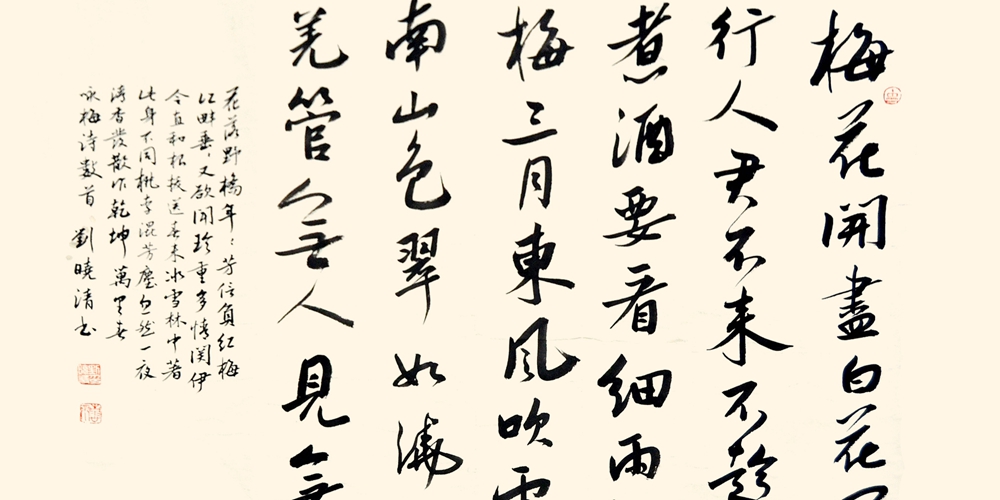 梅花開盡白花
行人君不來不
煮酒要看細雨
梅三月東風吹
南山色翠如澆
羌管無人見無
花落野橋年〻芳信負紅梅
江畔垂〻又欲開珍重多情関伊
令直和根拔送春来冰雪林中著
此身不同桃李混芳塵忽然一夜
清香發散作乾坤萬里春
咏梅诗數首 劉曉清书